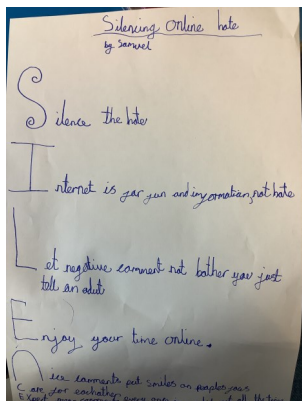 Silencing Online hate
by Samuel
Silence the hate
Internet is for fun and information, not hate
Let negative comment not bother you just
tell an adult
Enjoy your time online.
Nice comments put smiles on peoples
Care for eachother